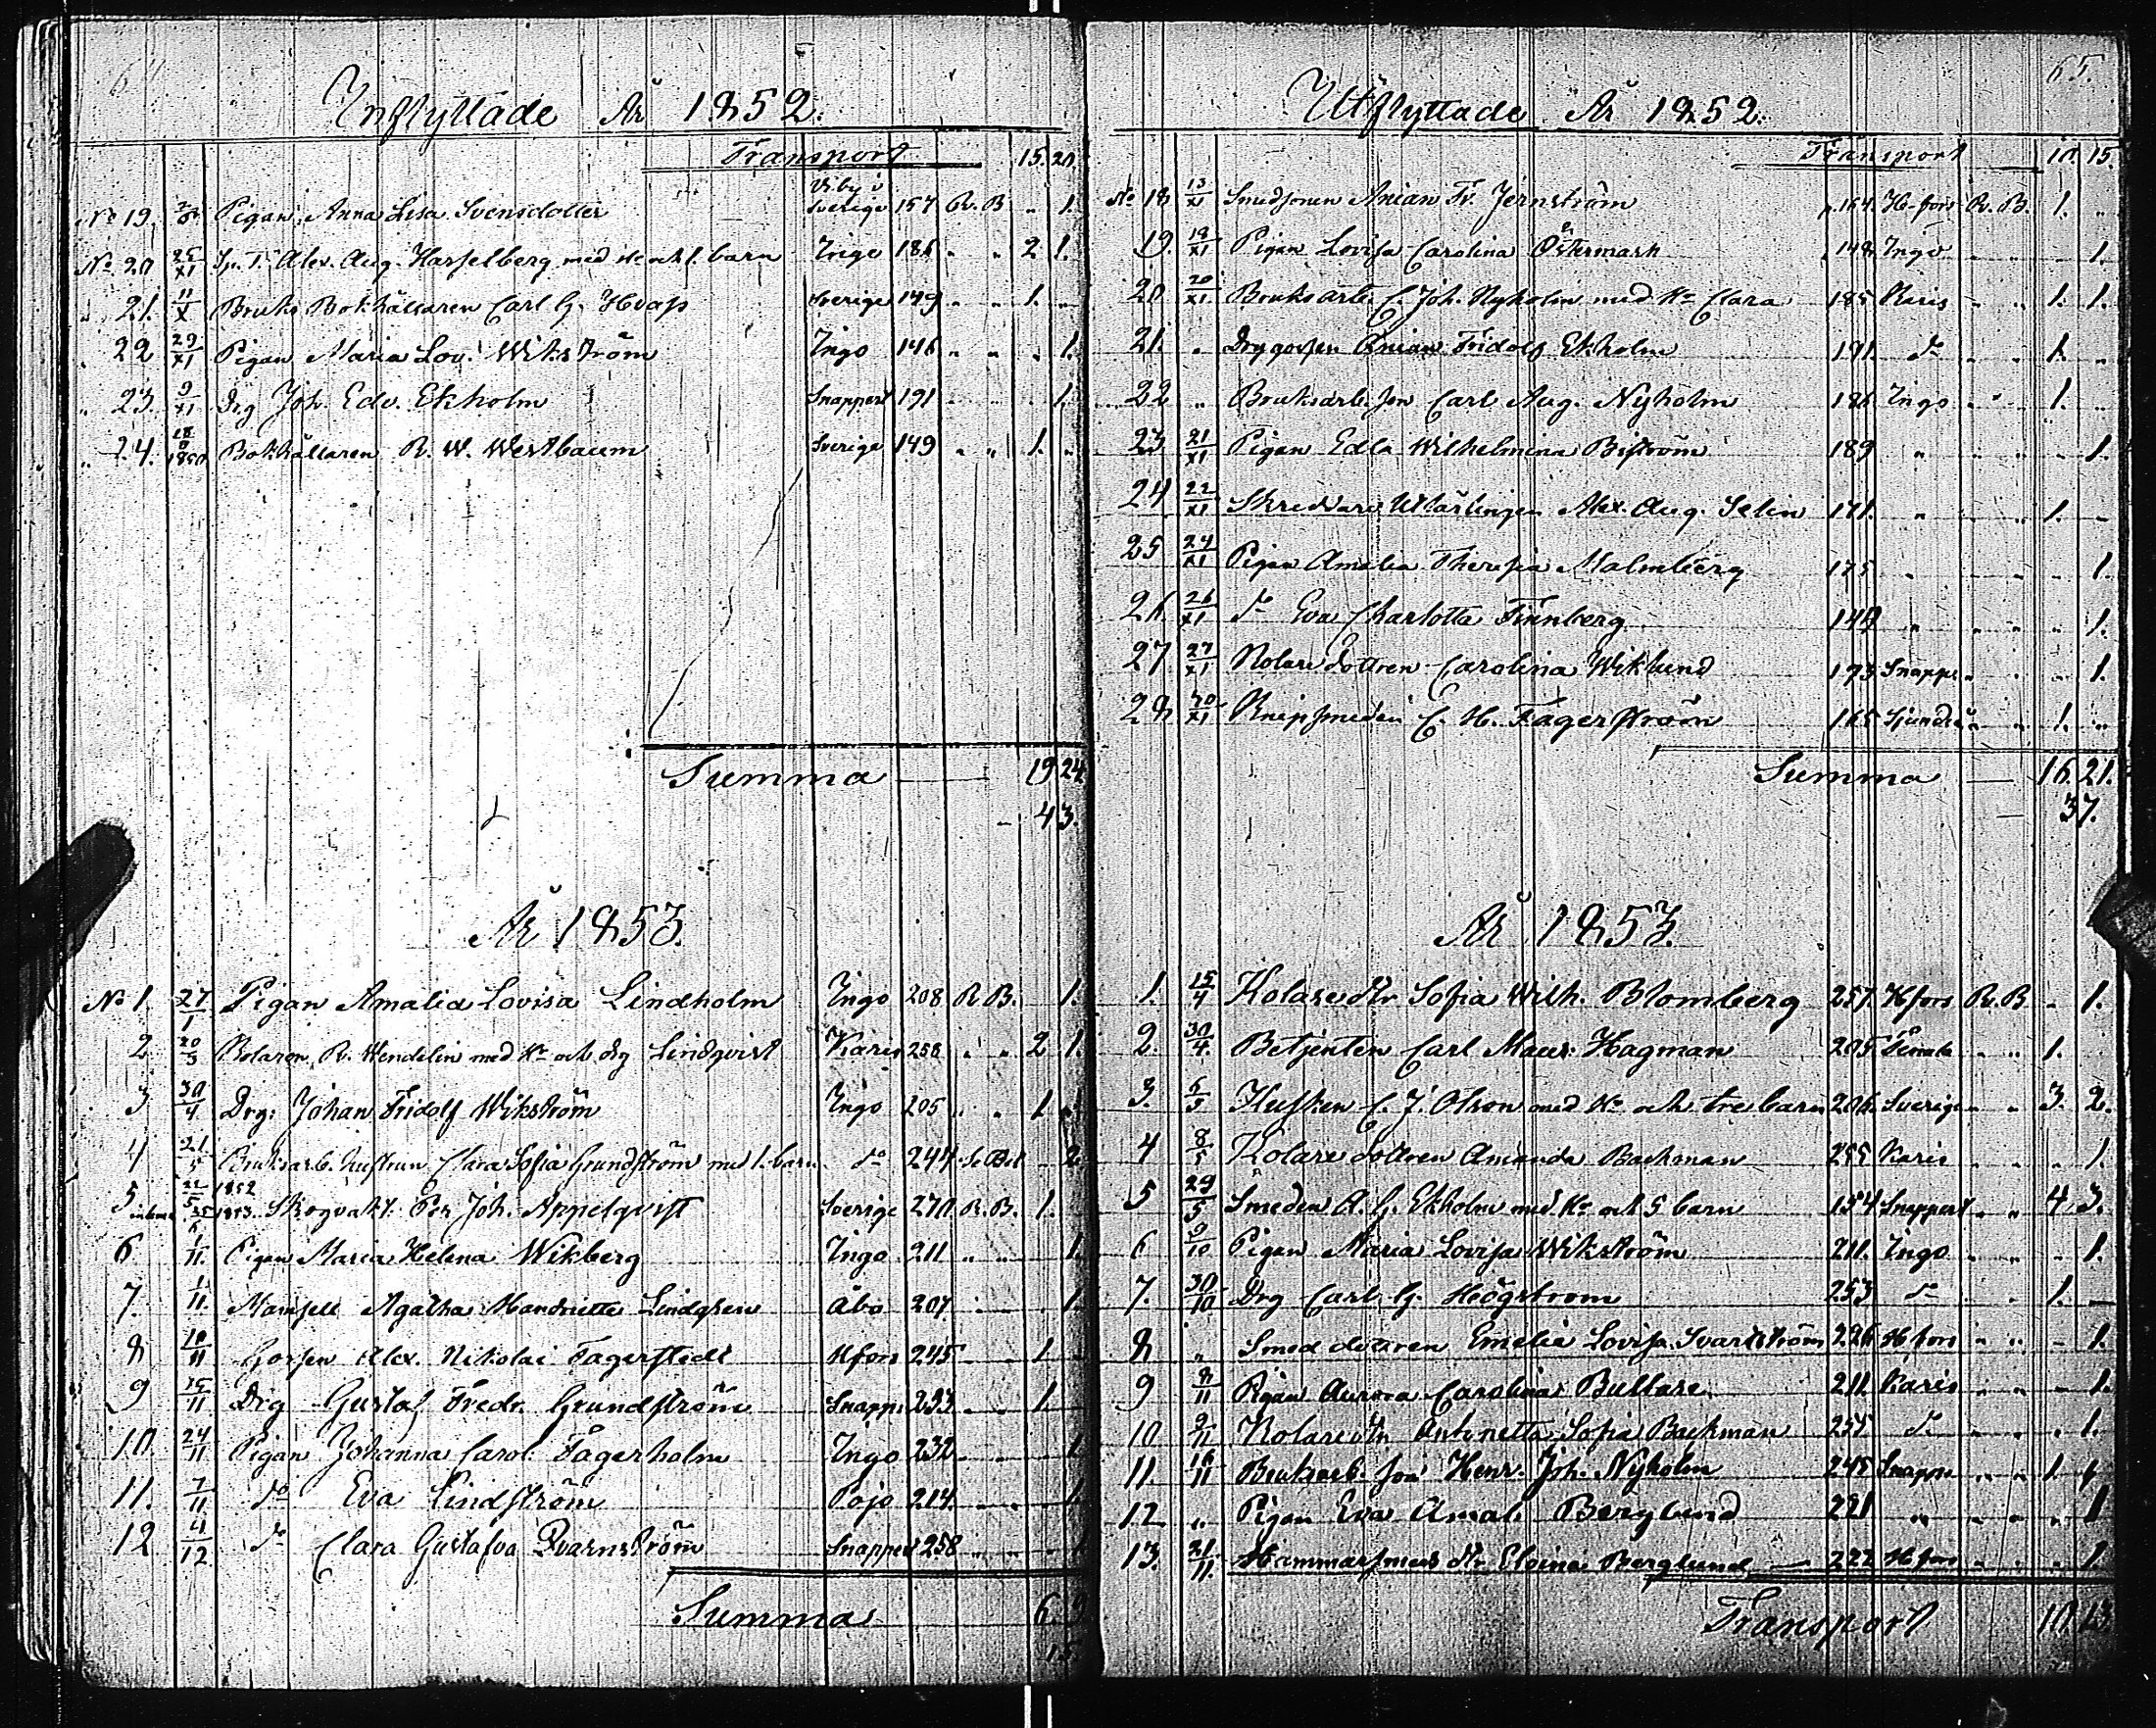 Inflyttade År 1852.
Transport 15. 20.
No 19. Pigan Anna Lisa Svensdotter Viby i Sverige 157 R. B. " 1.
No 20 25/XI Alex. Aug. Hasselberg med och 1. barn Ingo 186 " " 2 1.
" 21. 11/X Bruks Bokhållaren Carl G. Hvass Sverige 149 " " 1. "
" 22 29/XI Pigan Maria Lov. Wikström Ingo 146 " " " 1.
" 23. 9/XI Drg Joh. Edv. Ekholm Snappert 191 " " 1.
" 24. 1850 Bokhållaren R. W. Westbaum Sverige 149 " " 1. "
Summa 19 24
43.
År 1853.
No 1. 27/1 Pigan Amalia Lovisa Lindholm Ingo 208 R. B. 1.
2 20/3 R. Wendelin med Hu och drg Lindqvist Karis 258 " " 2 1.
3 30/4 Drg: Johan Fridolf Wikström Ingo 205 " " 1 "
4 21/5 Bruksarb. hustrun Clara Sofia Grundström med 1. barn do 244 2.
5 22/5 1852 1853. Skogvakt. Joh. Appelqvist Sverige 270 R. B. 1.
6 1/11. Pigan Maria Helena Wikberg Ingo 211 " " 1.
7. 1/11. Mamsell Agatha Handriette Lindgren Åbo 207. 1.
8 10/11 Gossen Alex. Nikolai Fagerstedt Hfors 245 1.
9 15/11 Drg Gustaf Fredr. Grundström Snapp. 233 1.
10 24/11 Pigan Johanna Carol. Fagerholm Ingo 232 1
11. 7/11 do Eva Lindström Pojo 214. 1
12 4/12 do Clara Gustafva Qvarnström Snappert 258 1
Summa 6. 9
15.
65.
Utflyttade År 1852.
Transport 10. 15.
No 18 13/XI Smedsonen Anian Fr. Jernström 164. H-fors R. B. 1. "
19. 18/XI Pigan Lovisa Carolina Östermark 148 Ingo 1.
20 20/XI Bruksarb. C. Joh. Nyholm med Hu Clara 185 Karis " " 1. 1.
21. " Drg gossen Anian Fridolf Ekholm 191. do " " 1. "
22 " Bruksarb. son Carl Aug. Nyholm 186 Ingo " " 1. "
23 21/XI Pigan Edla Wilhelmina Biström 189 " " " 1.
24 22/XI Skreddare Utlärlingen Alex. Aug. Selin 171. " " 1. "
25 24/XI Pigan Amalia Theresia Malmberg 175 " " " 1.
26. 26/XI do Eva Charlotta Finnberg 140 " " " 1.
27 27/XI Kolaredottren Carolina Wiklund 173 Snapps " " 1.
28 30/XI Knipsmeden C. H. Fagerström 165 Sjundeå " " 1. "
Summa 16. 21.
37.
År 1853.
1. 15/4 Kolare dtr Sofia Wilh. Blomberg 257. Hfors R. B. " 1.
2. 30/4. Betjenten Carl Maur: Hagman 205 Tenala " " 1.
3. 5/5 C. J. Olson med Hu och tre barn 206. Sverige " " 3. 2.
4 8/5 Kolare dottren Amanda Backman 255 Karis " " " 1.
5 29/5 Smeden A. G. Ekholm med Hu och 5 barn 154 Snappert " " 4 3.
6 9/10 Pigan Maria Lovisa Wikström 211. Ingo " " " 1.
7. 30/10 Drg Carl G. Högstrom 253 do " " 1. "
8 " Smed dottren Emelia Lovisa Svartström 226 H fors " " " 1.
9 8/11 Pigan Aurora Carolina Bullare 211. Karis " " " 1.
10 9/11 Kolare dtr Antonetta Sofia Backman 255 do " " " 1.
11. 16/11 Bruksarb. son Henr. Joh. Nyholm 245 Snapps " " 1.
12 " Pigan Eva Amal. Berglund 221 " " " " 1
13. 21/11. Hammarsmeds dtr Elvina Berglund 222 H fors " " " 1.
Transport 10. 13.